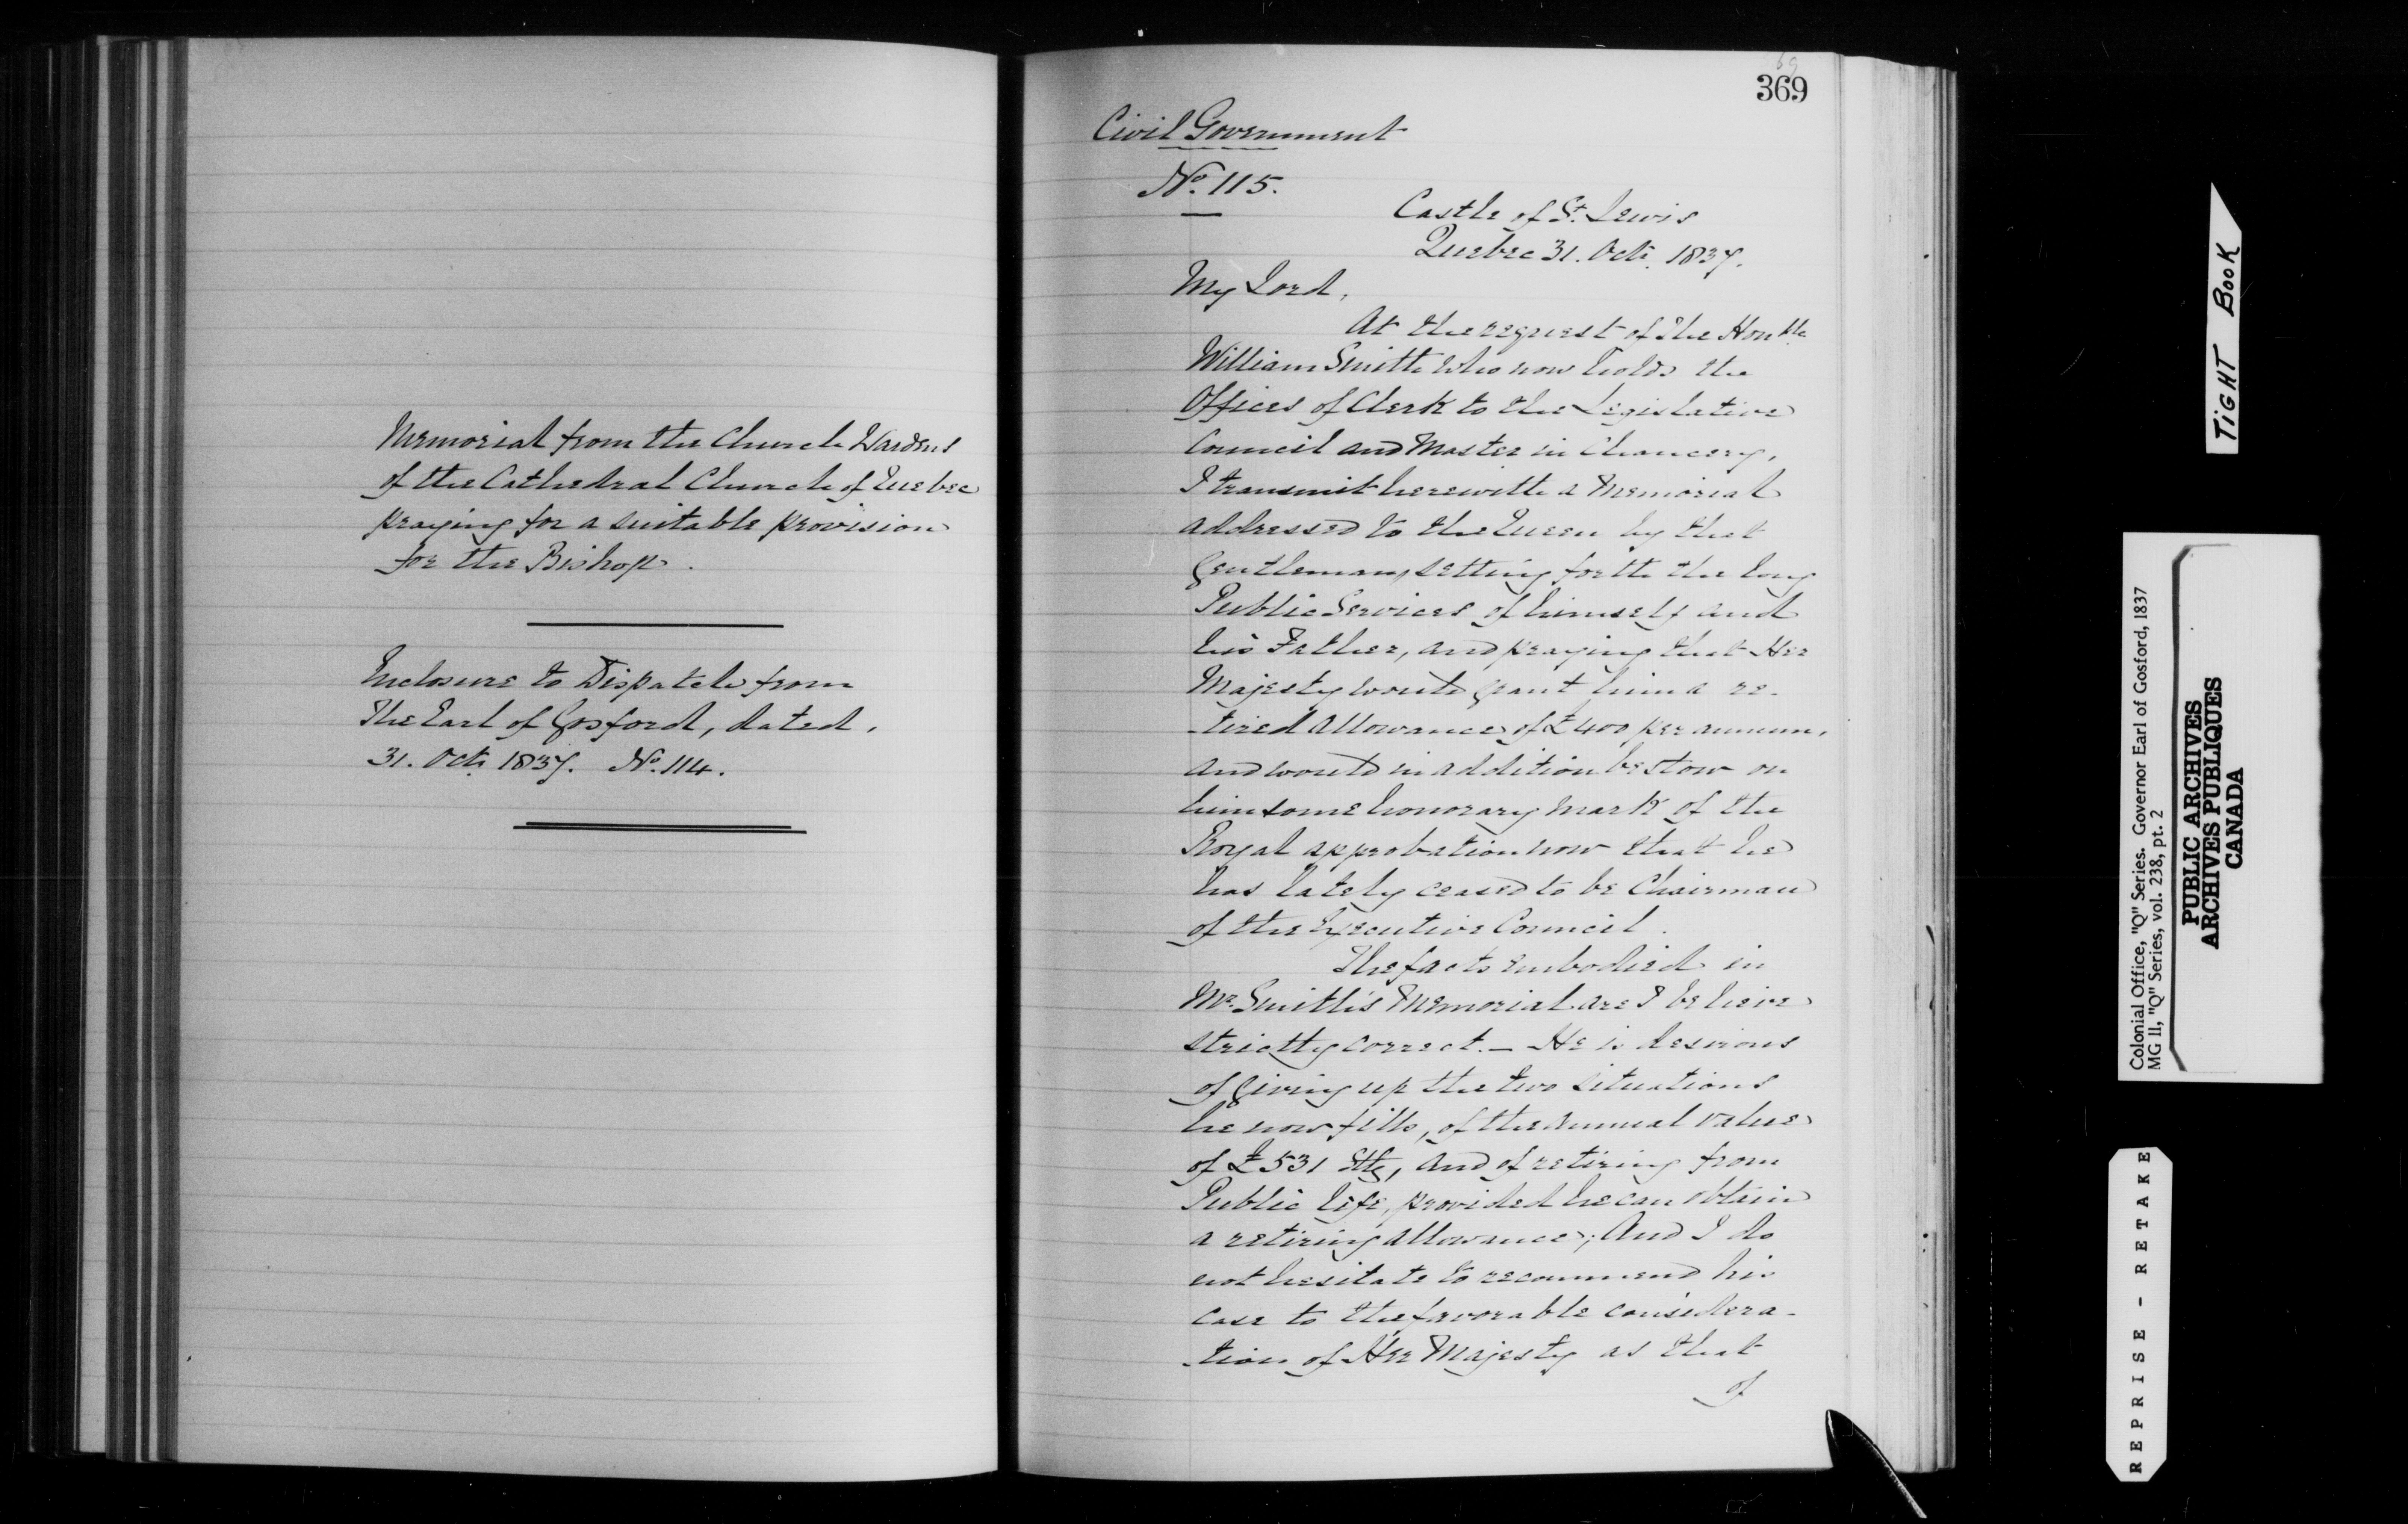 Memorial from the Church Wardens
of the Cathedral Church of Quebec
praying for a suitable provision
for the Bishop.
Enclosure to Dispatch from
The Earl of Gosford, dated,
31. Oct. 1837. No. 114.
369
Civil Government
No. 115.
Castle of St. Lewis
Quebec 31. Oct. 1837.
My Lord,
At the request of the Honble
William Smith who now holds the
Offices of Clerk to the Legislative
Council and Master in Chancery,
I transmit herewith a Memorial
addressed to the Queen by that
Gentleman, setting forth the long
Public Services of himself and
his Father, and praying that Her
Majesty would grant him a re-
-tired allowance of £400 per annum,
and would in addition bestow on
him some honorary mark of the
Royal approbation now that he
has lately ceased to be Chairman
of the Executive Council.
The facts embodied in
Mr. Smith's Memorial are I believe
strictly correct. — He is desirous
of giving up the two situations
he now fills, of the annual value
of £531 Stg, and of retiring from
Public life, provided he can obtain
a retiring allowance; And I do
not hesitate to recommend his
case to the favorable considera-
-tion of Her Majesty as that
of
TIGHT BOOK
Colonial Office, "Q" Series. Governor Earl of Gosford, 1837
MG 11, "Q" Series, vol. 238, pt. 2
PUBLIC ARCHIVES
ARCHIVES PUBLIQUES
CANADA
REPRISE - RETAKE